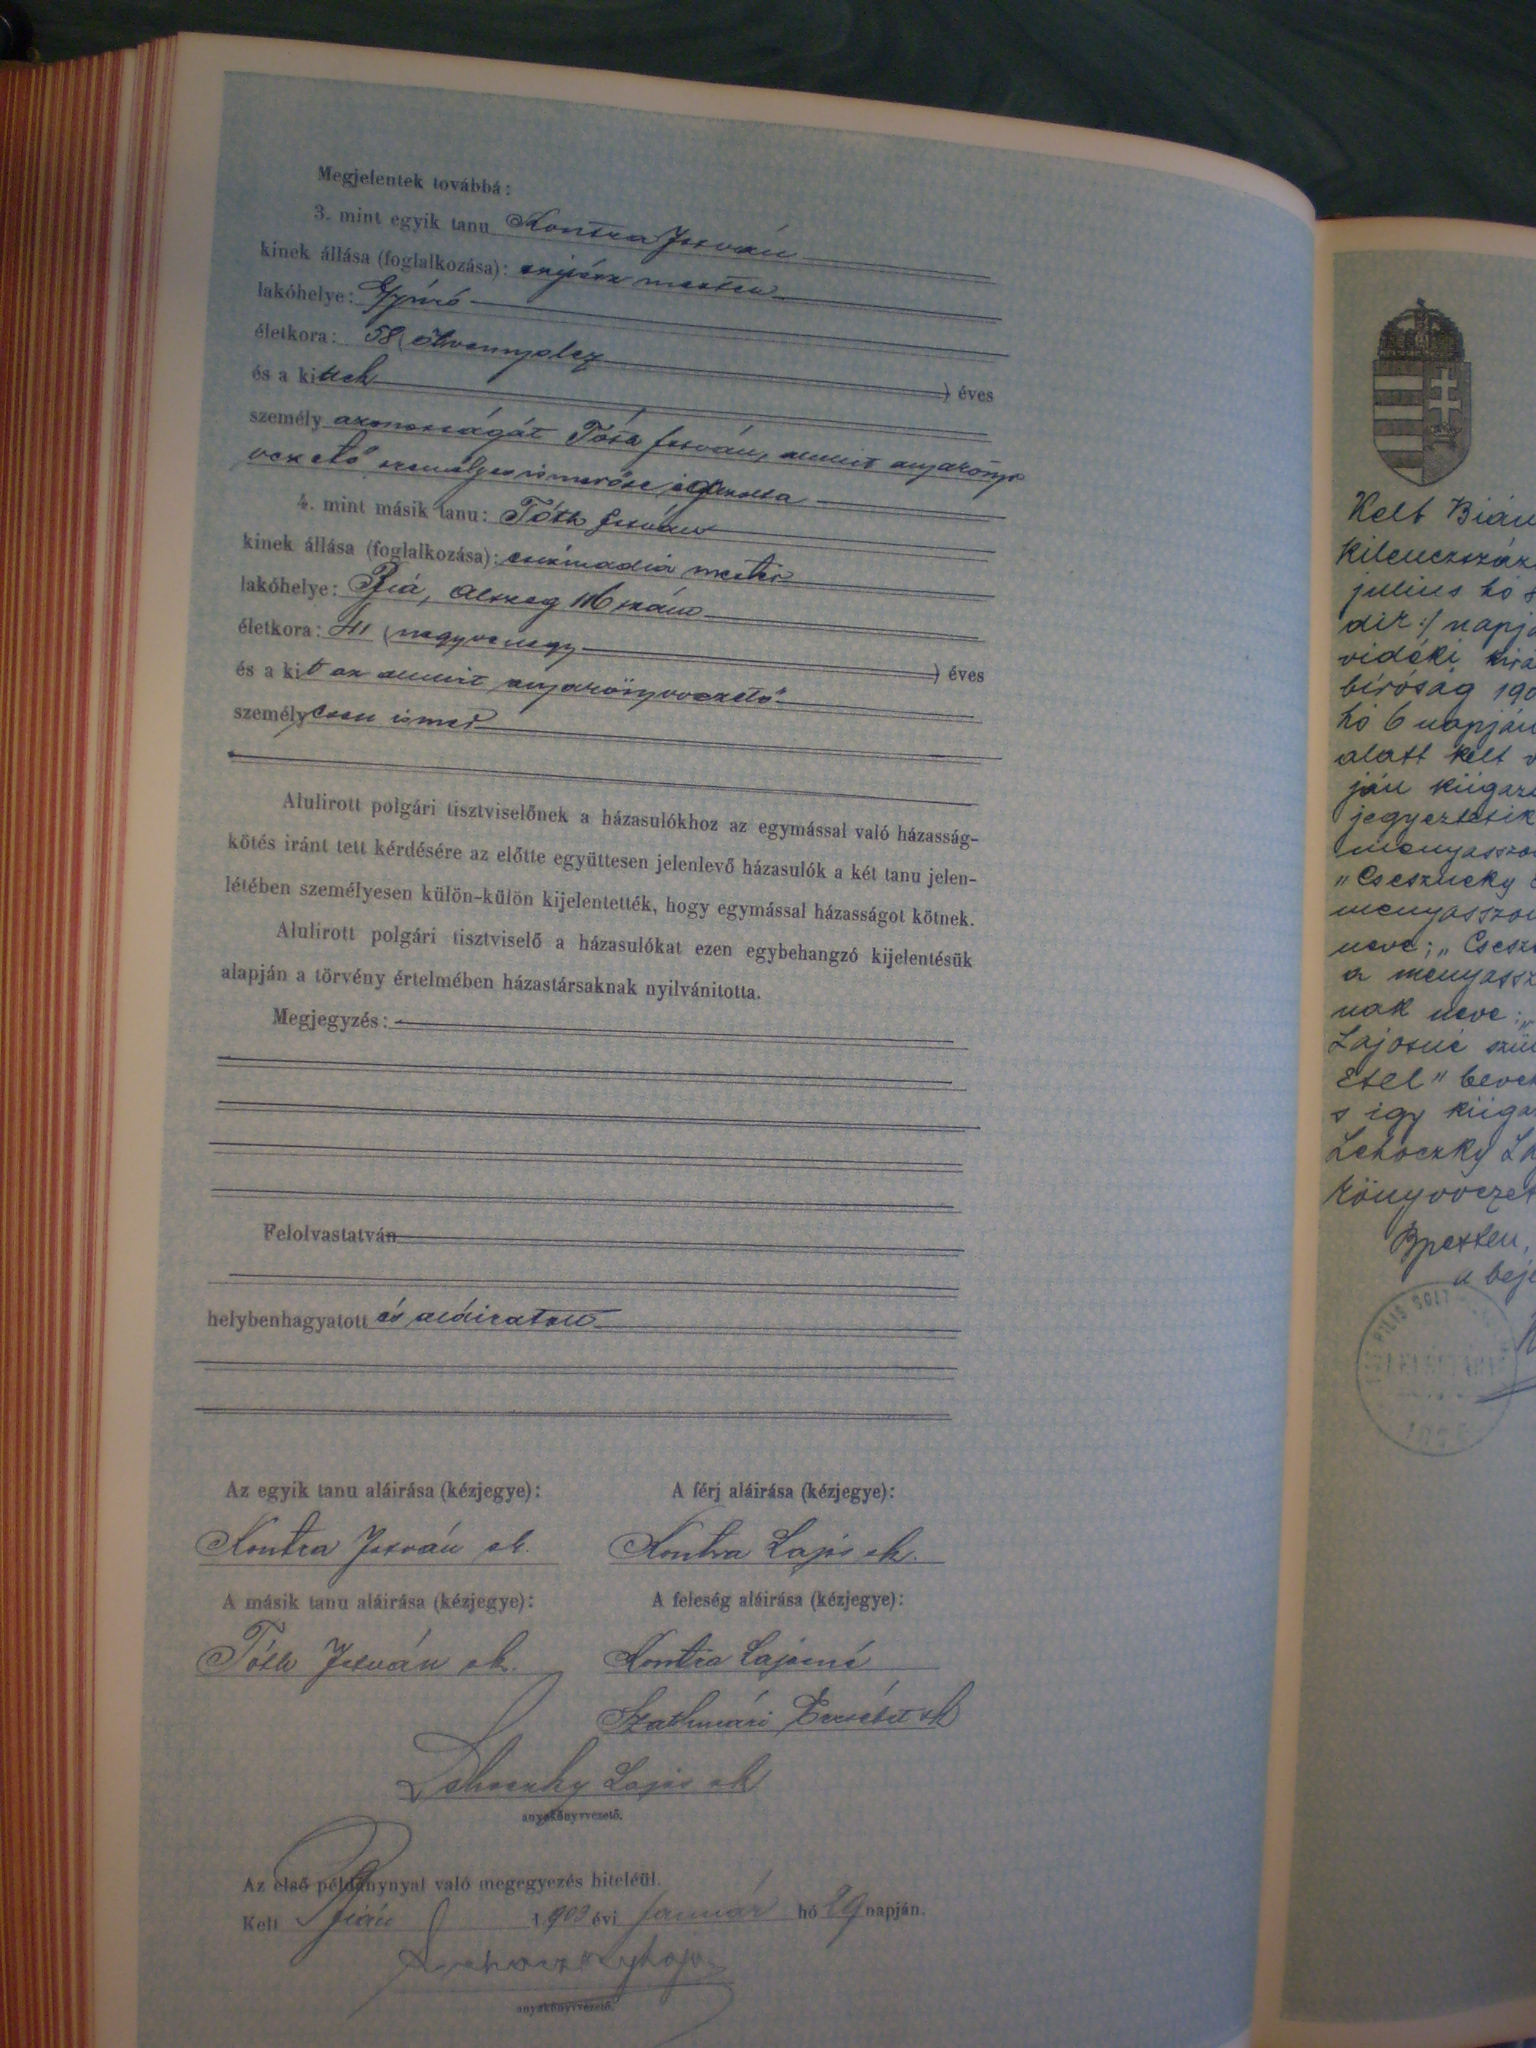 Megjelentek továbbá:
3. mint egyik tanu Kontra István
kinek állása (foglalkozása): mester
lakóhelye: Gyúró
életkora: 58 (ötvennyolcz ) éves
és a kinek
személy azonosságát Tóth István, mint anyakönyv
vezető személyes ismerőse igazolta
4. mint másik tanu: Tóth István
kinek állása (foglalkozása): csizmadia mester
lakóhelye: Bia, Alszeg 116 szám
életkora: 41 (negyvenegy ) éves
és a kit az anyakönyvvezető
személyesen ismer
Alulirott polgári tisztviselőnek a házasulókhoz az egymással való házasság-
kötés iránt tett kérdésére az előtte együttesen jelenlevő házasulók a két tanu jelen-
létében személyesen külön-külön kijelentették, hogy egymással házasságot kötnek.
Alulirott polgári tisztviselő a házasulókat ezen egybehangzó kijelentésük
alapján a törvény értelmében házastársaknak nyilvánitotta.
Megjegyzés:
Felolvastatván
helybenhagyatott és aláiratott
Az egyik tanu aláirása (kézjegye):
Kontra István sk.
A férj aláirása (kézjegye):
Kontra Lajos sk.
A másik tanu aláirása (kézjegye):
Tóth István sk.
A feleség aláirása (kézjegye):
Kontra Lajosné
Szathmári Erzsébet sk
Lehoczky Lajos sk
anyakönyvvezető.
Az első példánynyal való megegyezés hiteléül.
Kelt Bián 1903 évi január hó 29 napján.
Lehoczky Lajos
anyakönyvvezető.
Kelt Bián
Kilenczszáz
julius hó
napja
vidéki kirá
bíróság 190
hó 6 napján
alatt kelt v
ján kiigaz
jegyeztetik
menyasszon
"Cseszneky
menyasszon
neve; "Csesz
a menyassz
nak neve: "
Lajosné szül
Etel" beve
s igy kiiga
Lehoczky La
könyvvezet
Bpesten,
a beje
PILIS SOLT